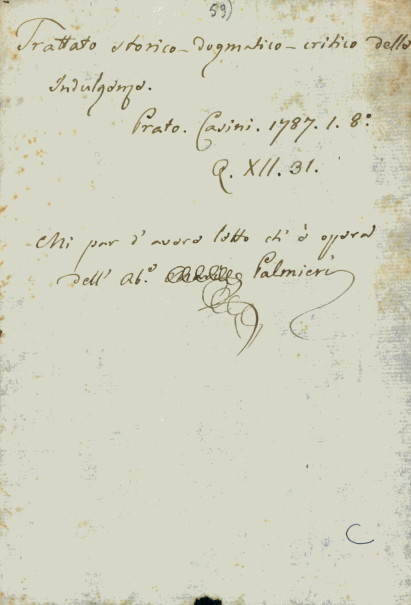 59)
Trattato storico-dogmatico-critico delle
Indulgenze.
Prato. Casini. 1787. 1. 8º
Q. XII. 31.
Mi par d'avere letto ch'è opera
dell' Ab.e Palmieri
C